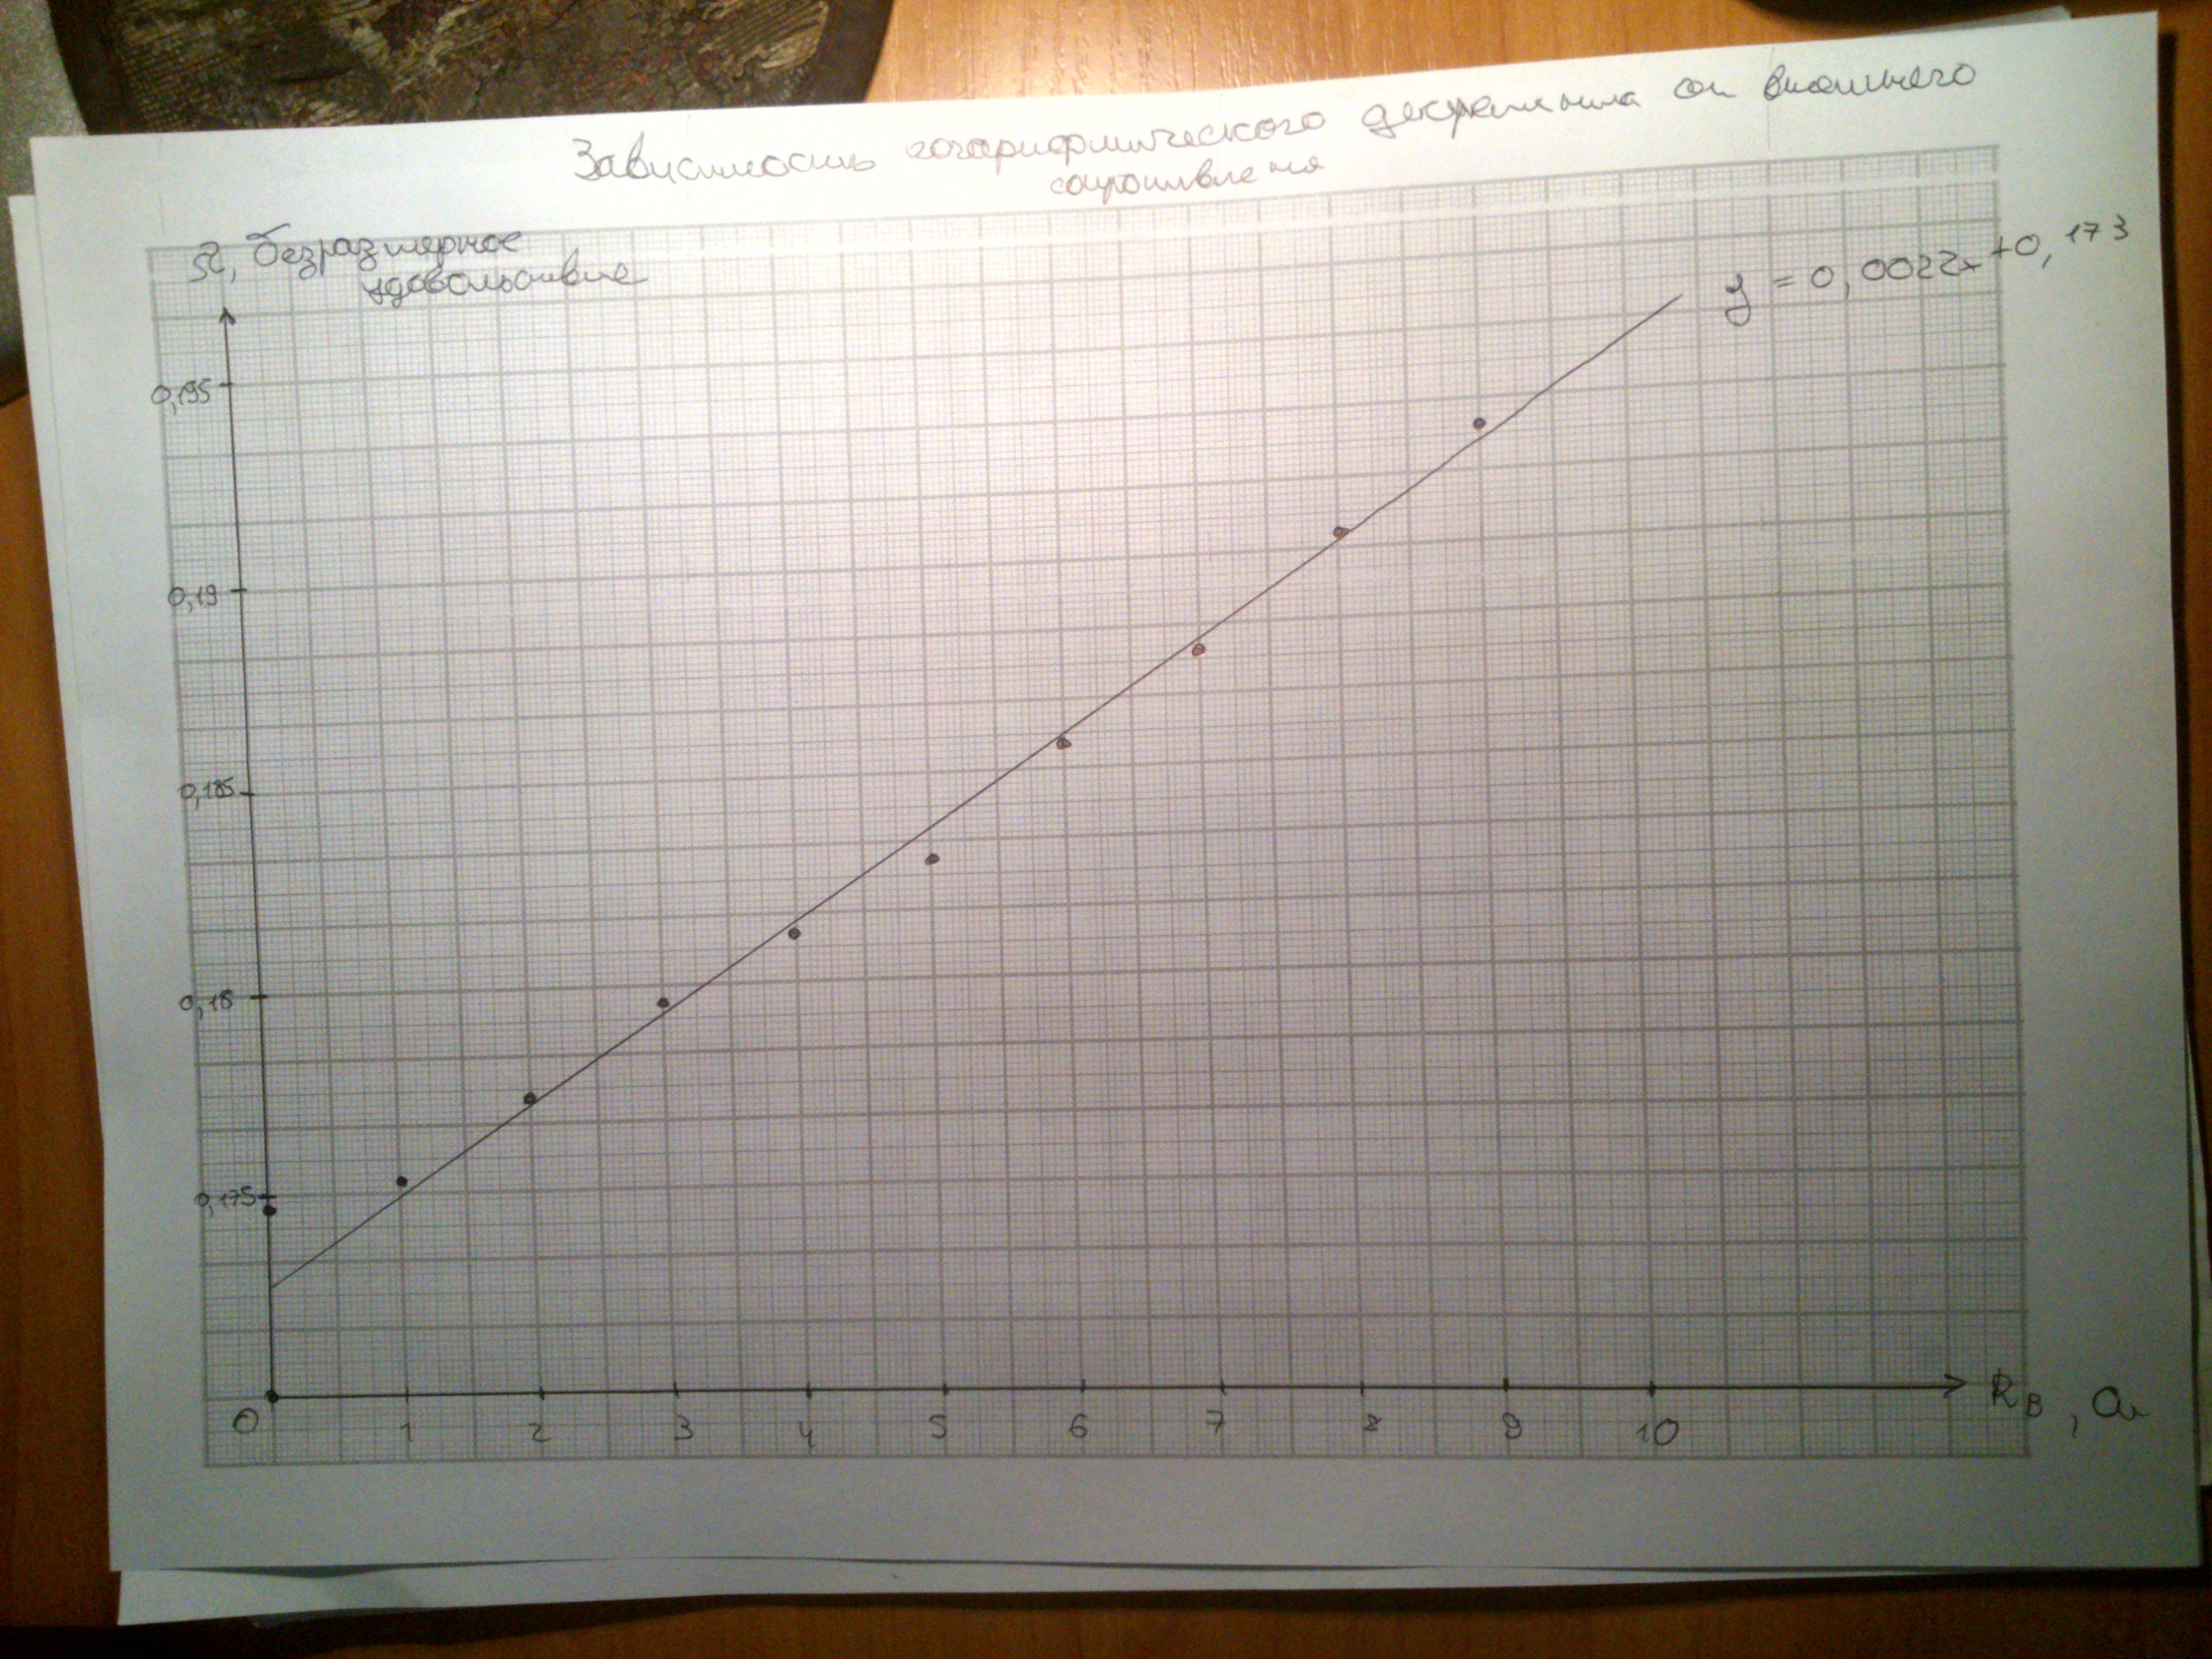 Зависимость логарифмического декремента от внешнего
сопротивления
Ω, безразмерное
удовольствие
y = 0,0022x+0,173
0,195
0,19
0,185
0,18
0,175
0 1 2 3 4 5 6 7 8 9 10
R_B, Ом